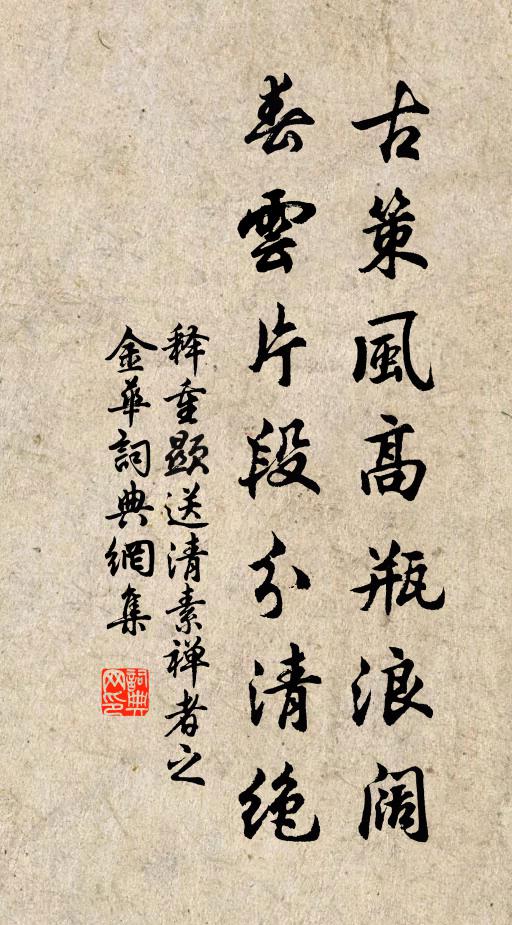 古策風高瓶浪闊
春雲片段分清絶
释重顯送清素禅者之
金華詞典網集
詞典网印